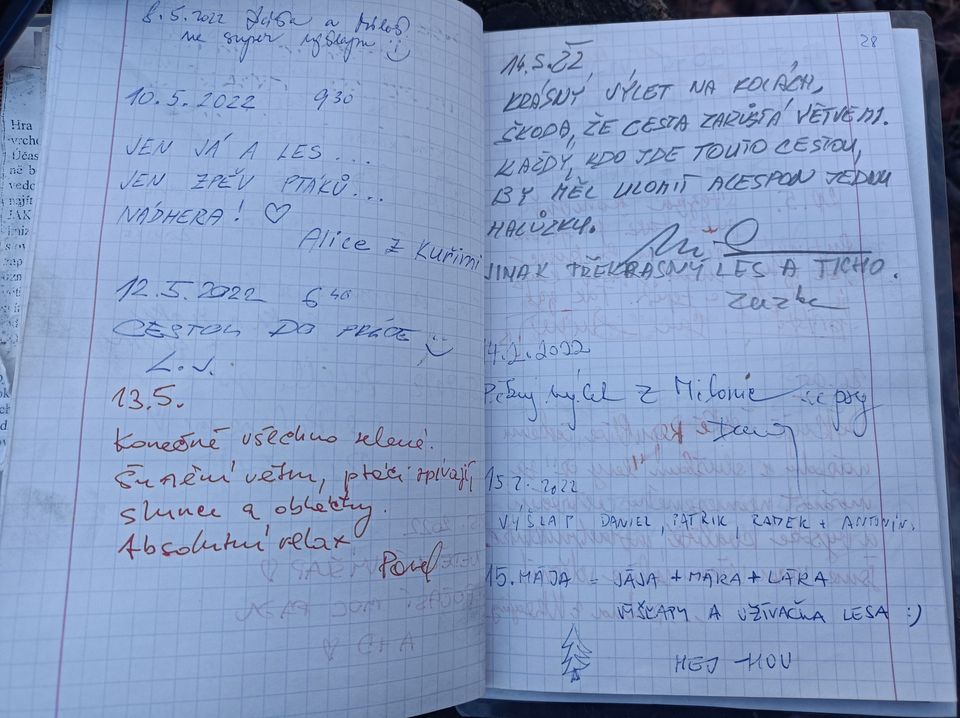 8.5.2022 a
na super :)
10.5.2022 9 30
JEN JÁ A LES...
JEN ZPĚV PTÁKŮ...
NÁDHERA! ♡
Alice z Kuřimi
12.5.2022 6 40
CESTOU DO PRÁCE :)
L.J.
13.5.
Konečně všechno zelené.
Šumění větru, ptáci zpívají,
slunce a obláčky.
Absolutní relax
Pavel
28
14.5.22
KRÁSNÝ VÝLET NA KOLÁCH,
ŠKODA, ŽE CESTA ZARŮSTÁ VĚTVEMI.
KAŽDÝ, KDO JDE TOUTO CESTOU,
BY MĚL ULOMIT ALESPOŇ JEDNU
HALŮZKU.
JINAK PŘEKRÁSNÝ LES A TICHO.
Zuzka
2022
Pěkný výlet z Milonic se psy
15 2022
VÝŠLAP DANIEL, PATRIK, RADEK + ANTONÍN.
15. MÁJA = JÁJA + MÁRA + LÁRA
VÝŠLAPY A UŽÍVAČKA LESA :)
HEJ HOU